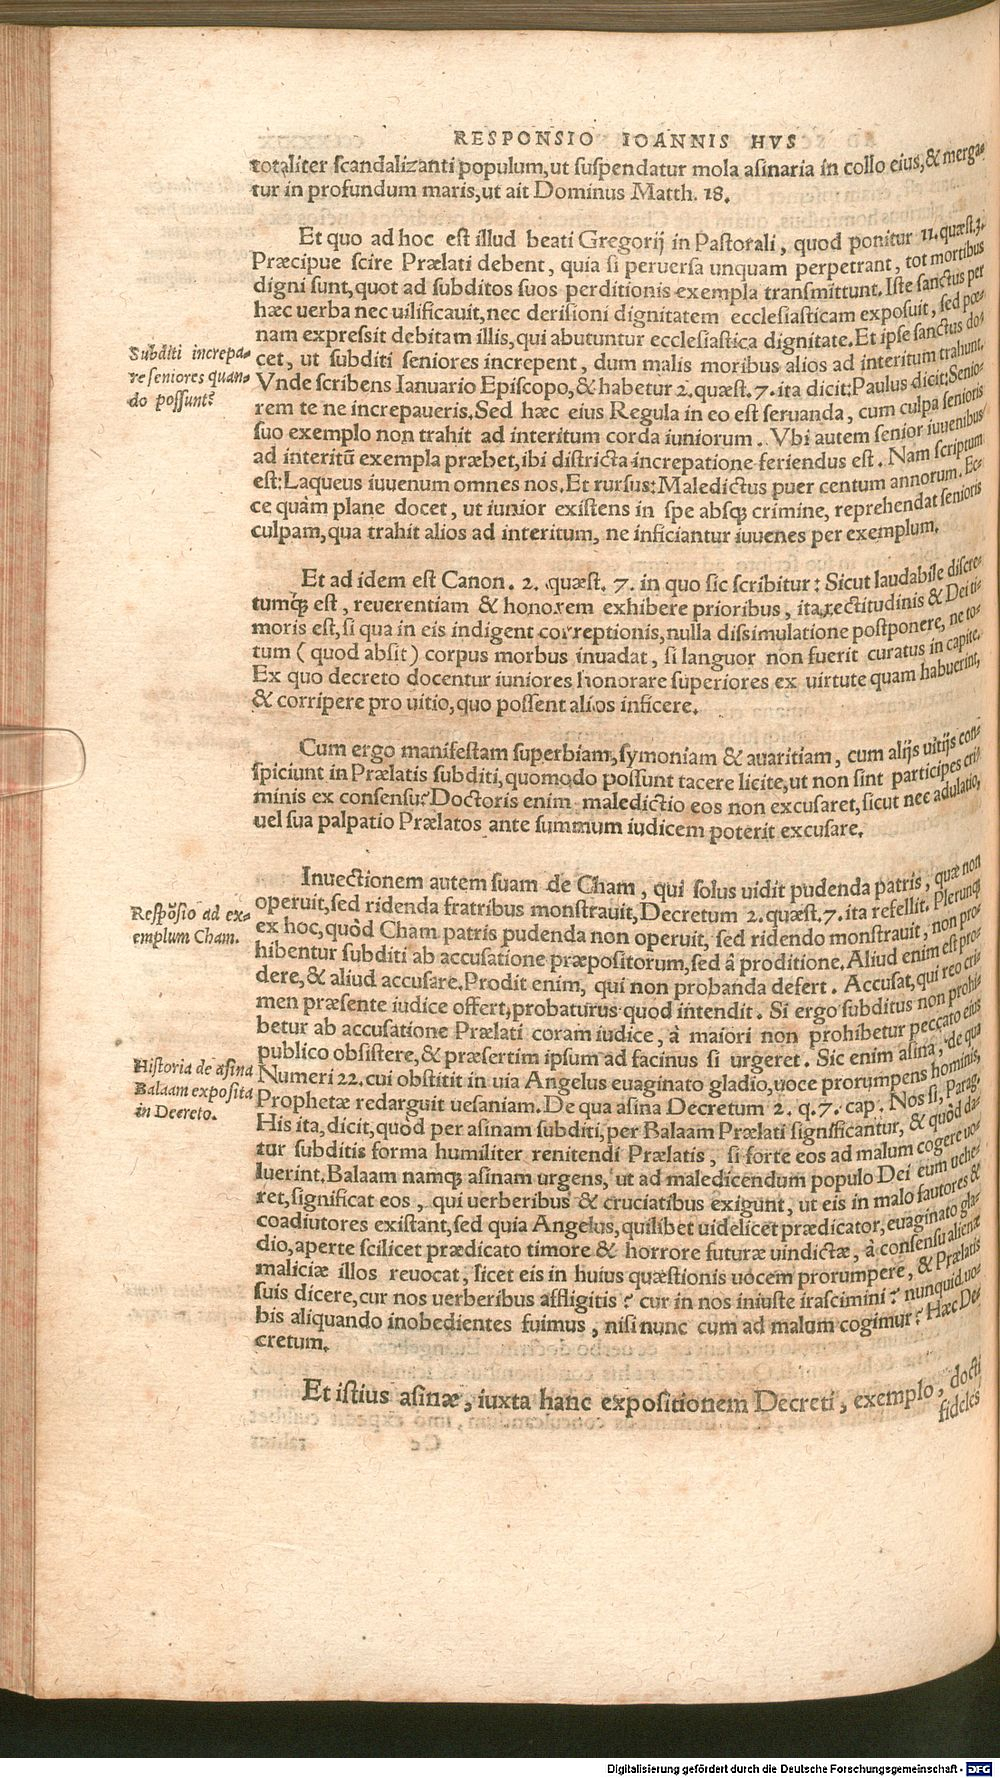 RESPONSIO IOANNIS HVS
totaliter scandalizanti populum, ut suspendatur mola asinaria in collo eius, & merga-
tur in profundum maris, ut ait Dominus Matth. 18.
Et quo ad hoc est illud beati Gregorij in Pastorali, quod ponitur 11. quæst. 3.
Præcipue scire Prælati debent, quia si peruersa unquam perpetrant, tot mortibus
digni sunt, quot ad subditos suos perditionis exempla transmittunt. Iste sanctus per
hæc uerba nec uilificauit, nec derisioni dignitatem ecclesiasticam exposuit, sed pœ-
nam expressit debitam illis, qui abutuntur ecclesiastica dignitate. Et ipse sanctus do-
Subditi increpa-
re seniores quan-
do possunt?
cet, ut subditi seniores increpent, dum malis moribus alios ad interitum trahunt.
Vnde scribens Ianuario Episcopo, & habetur 2. quæst. 7. ita dicit: Paulus dicit: Senio-
rem te ne increpaueris. Sed hæc eius Regula in eo est seruanda, cum culpa senioris
suo exemplo non trahit ad interitum corda iuniorum. Vbi autem senior iuuenibus
ad interitũ exempla præbet, ibi districta increpatione feriendus est. Nam scriptum
est: Laqueus iuuenum omnes nos. Et rursus: Maledictus puer centum annorum. Ec-
ce quàm plane docet, ut iunior existens in spe absq; crimine, reprehendat senioris
culpam, qua trahit alios ad interitum, ne inficiantur iuuenes per exemplum.
Et ad idem est Canon. 2. quæst. 7. in quo sic scribitur: Sicut laudabile discre-
tumq́; est, reuerentiam & honorem exhibere prioribus, ita rectitudinis & Dei ti-
moris est, si qua in eis indigent correptionis, nulla dissimulatione postponere, ne to-
tum (quod absit) corpus morbus inuadat, si languor non fuerit curatus in capite.
Ex quo decreto docentur iuniores honorare superiores ex uirtute quam habuerint,
& corripere pro uitio, quo possent alios inficere.
Cum ergo manifestam superbiam, symoniam & auaritiam, cum alijs uitijs con-
spiciunt in Prælatis subditi, quomodo possunt tacere licite, ut non sint participes cri-
minis ex consensu? Doctoris enim maledictio eos non excusaret, sicut nec adulatio,
uel sua palpatio Prælatos ante summum iudicem poterit excusare.
Inuectionem autem suam de Cham, qui solus uidit pudenda patris, quæ non
Respõsio ad ex-
emplum Cham.
operuit, sed ridenda fratribus monstrauit, Decretum 2. quæst. 7. ita refellit. Plerunq;
ex hoc, quòd Cham patris pudenda non operuit, sed ridendo monstrauit, non pro-
hibentur subditi ab accusatione præpositorum, sed â proditione. Aliud enim est pro-
dere, & aliud accusare. Prodit enim, qui non probanda defert. Accusat, qui reo cri-
men præsente iudice offert, probaturus quod intendit. Si ergo subditus non prohi-
betur ab accusatione Prælati coram iudice, à maiori non prohibetur peccato eius
publico obsistere, & præsertim ipsum ad facinus si urgeret. Sic enim asina, de qua
Historia de asina
Balaam exposita
in Decreto.
Numeri 22. cui obstitit in uia Angelus euaginato gladio, uoce prorumpens hominis,
Prophetæ redarguit uesaniam. De qua asina Decretum 2. q. 7. cap. Nos si, Parag.
His ita, dicit, quòd per asinam subditi, per Balaam Prælati significantur, & quòd da-
tur subditis forma humiliter renitendi Prælatis, si forte eos ad malum cogere uo-
luerint. Balaam namq; asinam urgens, ut ad maledicendum populo Dei eum uehe-
ret, significat eos, qui uerberibus & cruciatibus exigunt, ut eis in malo fautores &
coadiutores existant, sed quia Angelus, quilibet uidelicet prædicator, euaginato gla-
dio, aperte scilicet prædicato timore & horrore futuræ uindictæ, à consensu alienæ
maliciæ illos reuocat, licet eis in huius quæstionis uocem prorumpere, & Prælatis
suis dicere, cur nos uerberibus affligitis? cur in nos iniuste irascimini? nunquid uo-
bis aliquando inobedientes fuimus, nisi nunc cum ad malum cogimur? Hæc De-
cretum.
Et istius asinæ, iuxta hanc expositionem Decreti, exemplo, docti
fideles
Digitalisierung gefördert durch die Deutsche Forschungsgemeinschaft - DFG